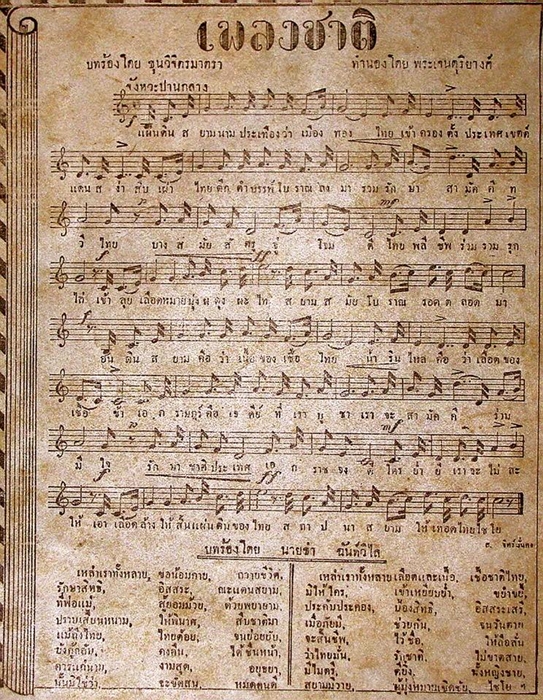 เพลงชาติ
บทร้องโดย ขุนวิจิตรมาตรา ทำนองโดย พระเจนดุริยางค์
จังหวะปานกลาง
แผ่นดินสยามนามประเทืองว่าเมืองทอง ไทยเข้าครองตั้งประเทศเขตต์
แดนสง่า สืบเผ่าไทยดึกดำบรรพ์โบราณลงมา รวมรักษาสามัคคีท
วีไทย บางสมัยศัตรูจู่โจมตี ไทยพลีชีพร่วมรวมรุก
ไล่ เข้าลุยเลือดหมายมุ่งผดุงผะไท สยามสมัยโบราณรอดตลอดมา
ยืน ดินสยามคือว่าเนื้อของเชื้อไทย น้ำรินไหลคือว่าเลือดของ
เชื้อข้า เอกราษฎร์คือเจดีย์ที่เราบูชา เราจะสามัคคีร่วม
มีใจ รักษาชาติประเทศเอกราชจงดี ใครย่ำยีเราจะไม่ละ
ให้ เอาเลือดล้างให้สิ้นแผ่นดินของไทย สถาปนาสยามให้เทอดไทยไชโย
บทร้องโดย นายฉ่ำ ฉันท์วิไล
เหล่าเราทั้งหลาย, ขอน้อมกาย, ถวายชีวิต, เหล่าเราทั้งหลายเลือดและเนื้อ, เชื้อชาติไทย,
รักษาสิทธิ, อิสสระ, ณะแดนสยาม, มิให้ใคร, เข้าเหยียบย่ำ, ขย่ำขยี้,
ที่พ่อแม่, สู้ยอมม้วย, ด้วยพยายาม, ประคับประคอง, ป้องสิทธิ, อิสสระเสรี,
ปราบเสี้ยนหนาม, ให้พินาศ, สืบชาติมา เมื่อภัยมี, ช่วยกัน, จนวันตาย
แม้ถึงไทย, ไทยด้อย, จนย่อยยับ, จะสิ้นชีพ, ไว้ชื่อ, ให้ลือลั่น
ยังกู้กลับ, คงคืน, ได้ชื่นหน้า, ว่าไทยมั่น, รักชาติ, ไม่ขาดสาย,
ควรแก่นาม, งามสุด, อยุธยา, มีไมตรี, ดียิ่ง, ทั้งหญิงชาย,
นั้นมิใช่ว่า, จะขัดสน, หมดคนดี สยามมิวาย, ผู้มุ่งหมายเชิดชัย, ไชโย